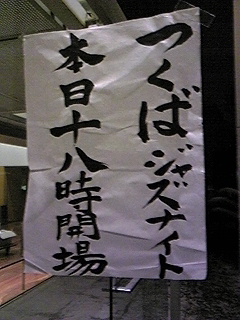 つくばジャズナイト
本日十八時開場